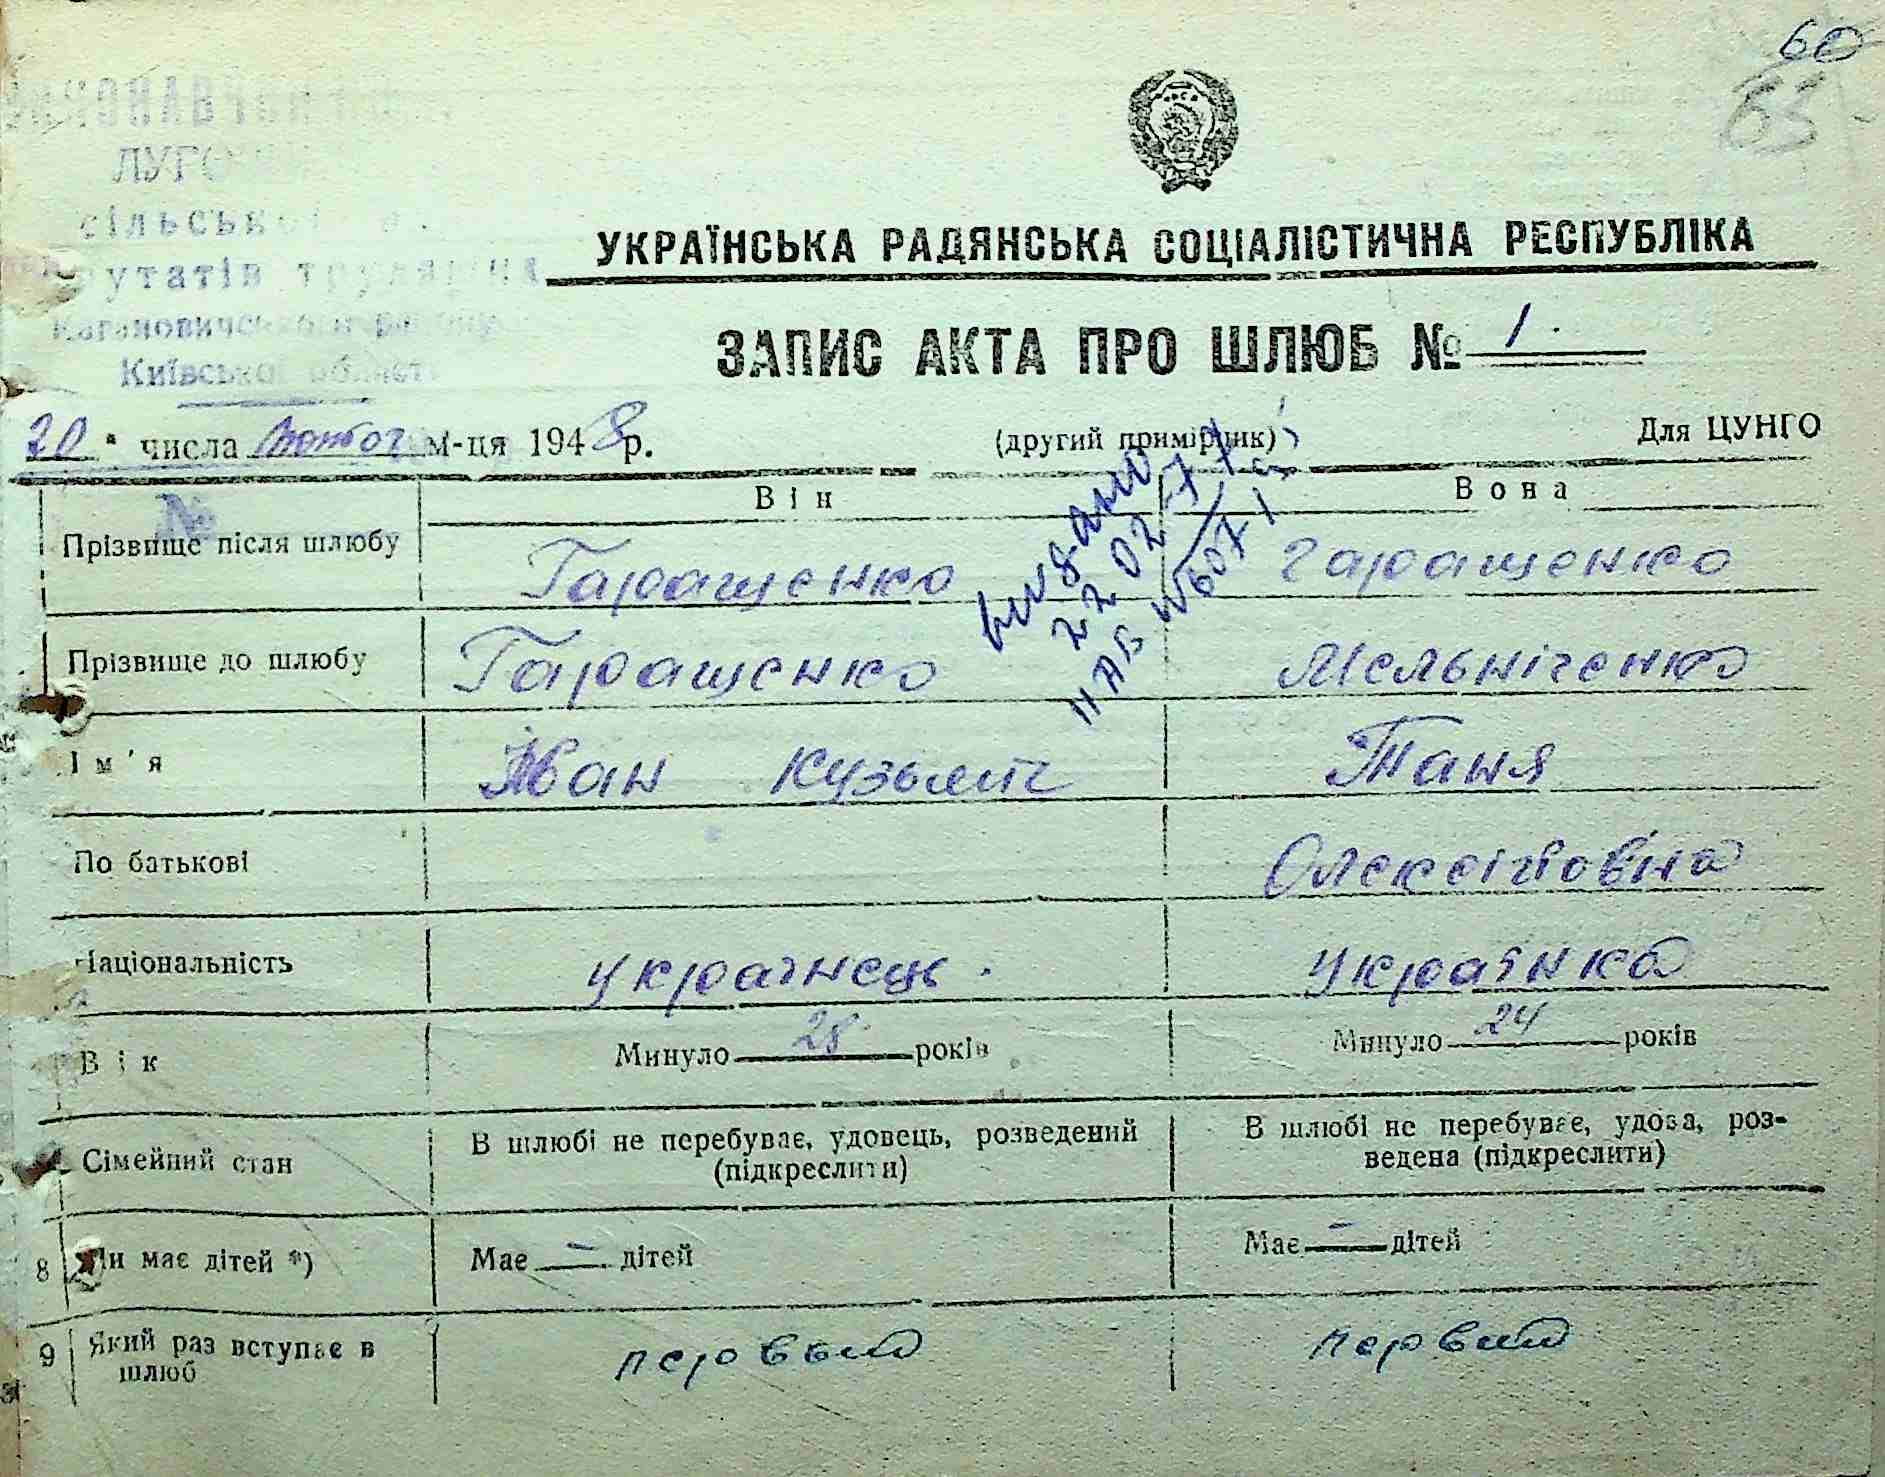 60
63
ЛУГО
сільської
депутатів трудящих
Кагановичського району
Київської області
УКРАЇНСЬКА РАДЯНСЬКА СОЦІАЛІСТИЧНА РЕСПУБЛІКА
ЗАПИС АКТА ПРО ШЛЮБ № 1.
20 " числа м-ця 1948 р. (другий примірник) Для ЦУНГО
№
Він Вона
видано
22 02-77
ІІ АБ №60715
Прізвище після шлюбу Гаращенко Гаращенко
Прізвище до шлюбу Гаращенко Мельніченко
Ім'я Іван Кузьмич Таня
По батькові Олексіївна
Національність українець. українка
Вік Минуло 28 років Минуло 24 років
Сімейний стан В шлюбі не перебуває, удовець, розведений (підкреслити) В шлюбі не перебуває, удова, роз-
ведена (підкреслити)
8 Чи має дітей *) Має – дітей Має – дітей
9 Який раз вступає в шлюб первый первий